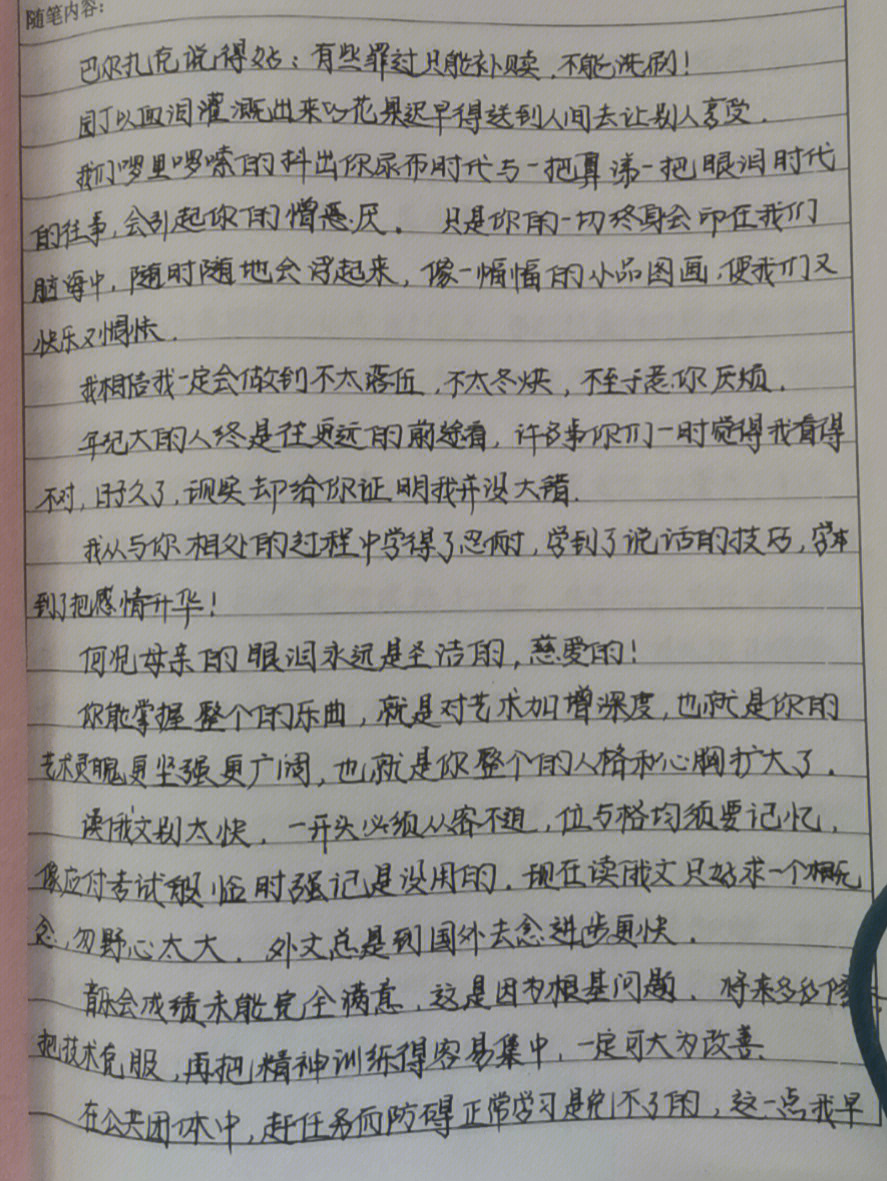 随笔内容:
巴尔扎克说得好:有些罪过只能补赎,不能洗刷!
园丁以血泪灌溉出来的花果迟早得送到人间去让别人享受.
我们啰里啰嗦的抖出你尿布时代与一把鼻涕一把眼泪时代
的往事,会引起你的憎恶厌. 只是你的一切终身会印在我们
脑海中,随时随地会浮起来,像一幅幅的小品图画,使我们又
快乐又惆怅.
我相信我一定会做到不太落伍,不太冬烘,不至于惹你厌烦.
年纪大的人终是往更远的前途看,许多事你们一时觉得我看得
不对,日子久了,现实却给你证明我并没大错.
我从与你相处的过程中学得了忍耐,学到了说话的技巧,学
到了把感情升华!
何况母亲的眼泪永远是圣洁的,慈爱的!
你能掌握整个的乐曲,就是对艺术加增深度,也就是你的
艺术灵魂更坚强更广阔,也就是你整个的人格和心胸扩大了.
读俄文别太快,一开头必须从容不迫,位与格均须要记忆,
像应付考试般临时强记是没用的.现在读俄文只好求一个概
念,勿野心太大. 外文总是到国外去念进步更快.
音乐会成绩未能完全满意,这是因为根基问题. 将来多多修
把技术克服,再把精神训练得容易集中,一定可大为改善.
在公共团体中,赶任务而防碍正常学习是免不了的,这一点我早